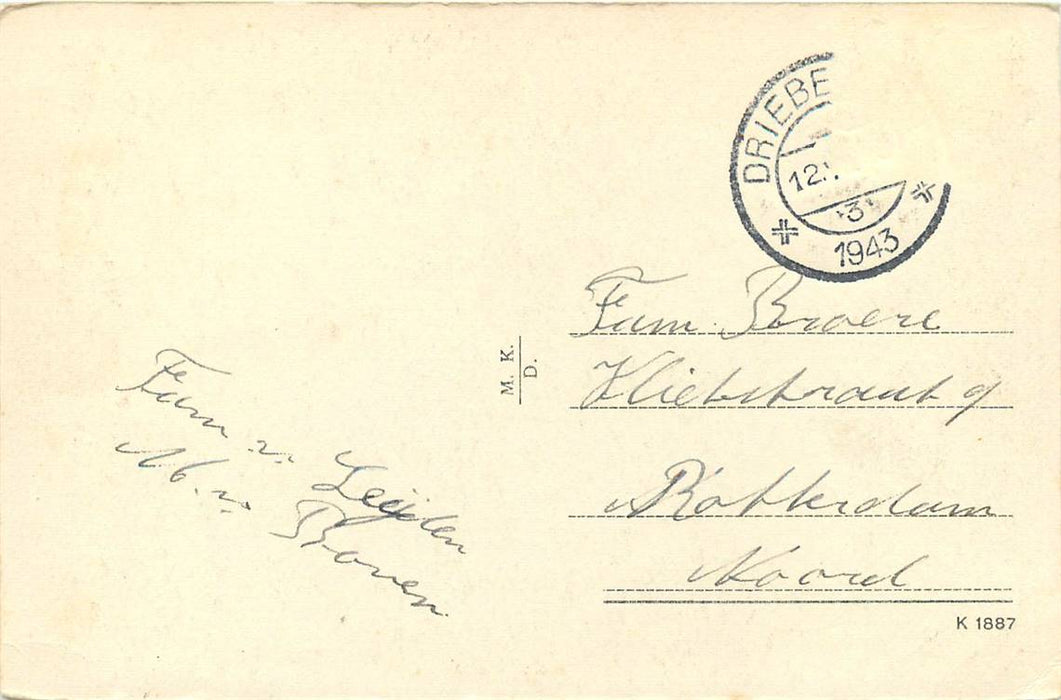 DRIEBE
12.
3
1943
Fam. Broere
Vlietstraat 9
Rotterdam
Noord
M. K.
D.
Fam v. Leijden
M. v. Boven
K 1887